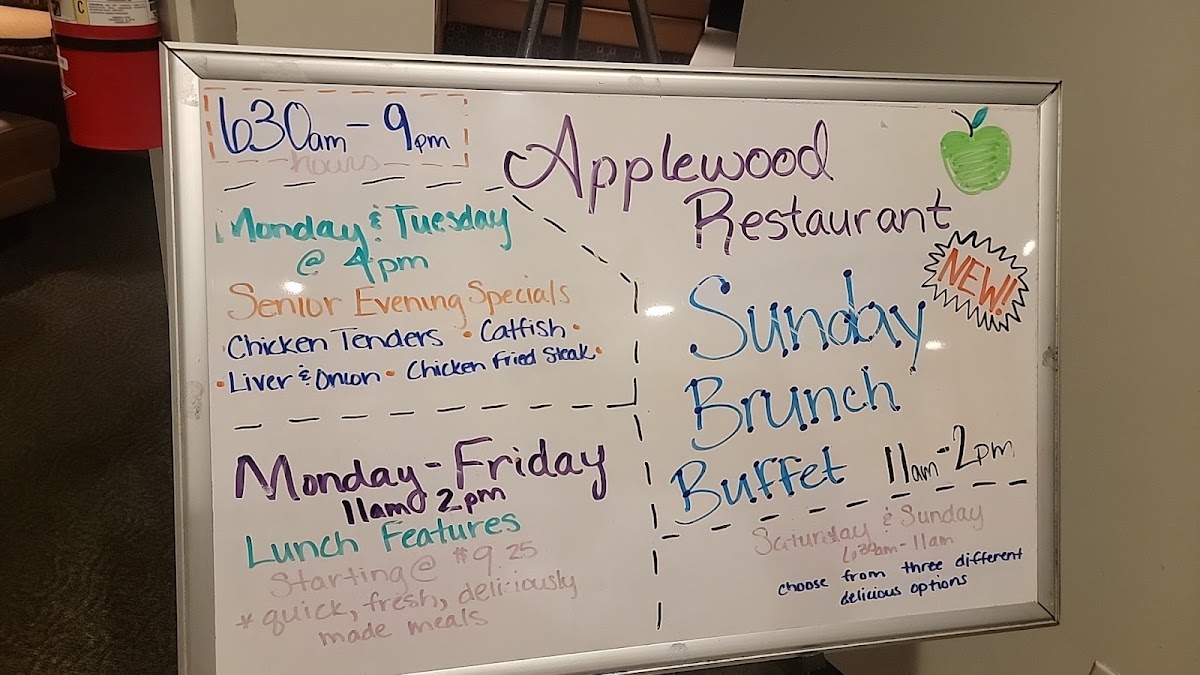 630am - 9pm
hours
Monday & Tuesday
@ 4pm
Senior Evening Specials
Chicken Tenders • Catfish •
• Liver & Onion • Chicken Fried Steak •
Monday - Friday
11am 2pm
Lunch Features
Starting @ $9.25
* quick, fresh, deliciously
made meals
Applewood
Restaurant
NEW!
Sunday
Brunch
Buffet 11am-2pm
Saturday & Sunday
6:30am-11am
choose from three different
delicious options